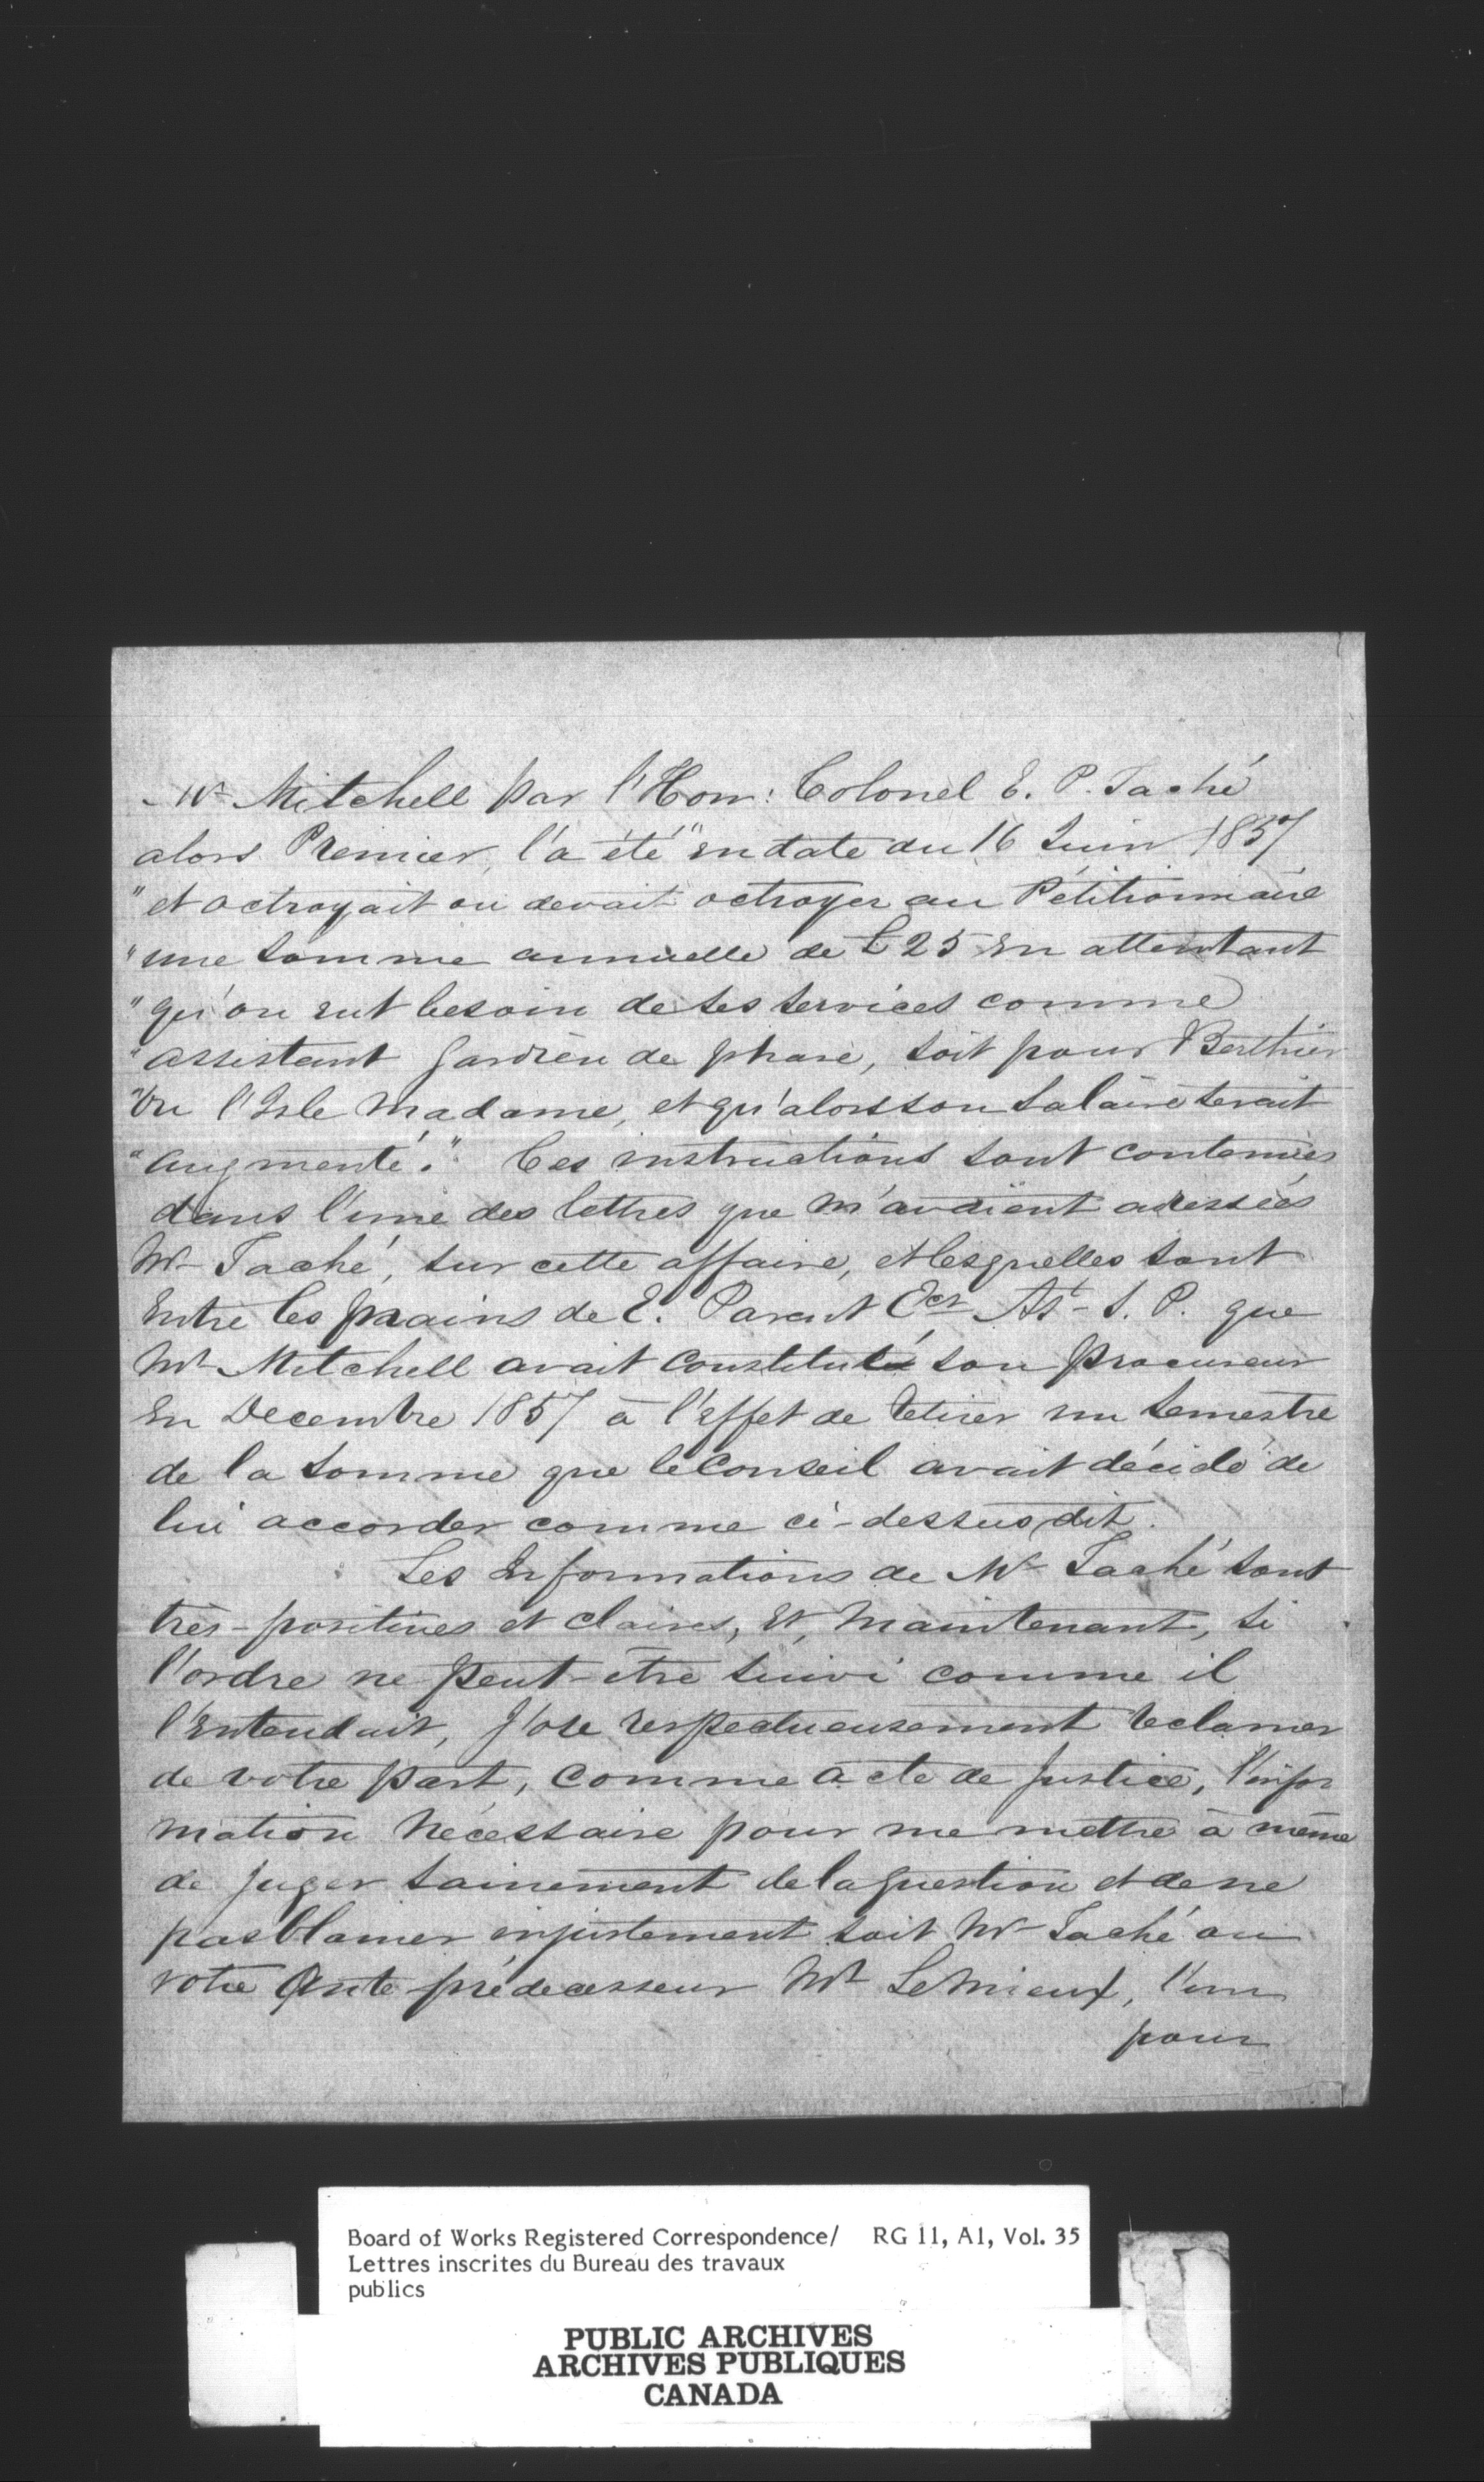 Mr Mitchell par l'Hon: Colonel E. P. Taché
alors Premier, l'a été "en date du 16 Juin 1857
"et octroyait ou devait octroyer au Pétitionnaire
"une somme annuelle de £25 en attentant
"qu'on eut besoin de ses services comme
"assistant gardien de phare, soit pour Berthier
"ou l'Isle Madame, et qu'alors son salaire serait
"augmenté." Ces instructions sont contenues
dans l'une des lettres que m'avaient adressées
Mr Taché, sur cette affaire, et lesquelles sont
Entre les mains de E. Parent Ecr Ast- S. P. que
Mr Mitchell avait constitué son procureur
En Decembre 1857 à l'effet de retirer un semestre
de la somme que le Conseil avait décidé de
lui accorder comme ci-dessus dit.
Les Informations de Mr Taché sont
très-positives et claires, et, maintenant, si
l'ordre ne peut-être suivi comme il
l'entendait, J'ose respectueusement reclamer
de votre part, comme acte de justice, l'infor
mation nécessaire pour me mettre à même
de juger sainement de la question et de ne
pas blamer injustement soit Mr Taché ou
votre Ante-prédecesseur Mr LeMieux, l'un
pour
Board of Works Registered Correspondence/ RG 11, A1, Vol. 35
Lettres inscrites du Bureau des travaux
publics
PUBLIC ARCHIVES
ARCHIVES PUBLIQUES
CANADA